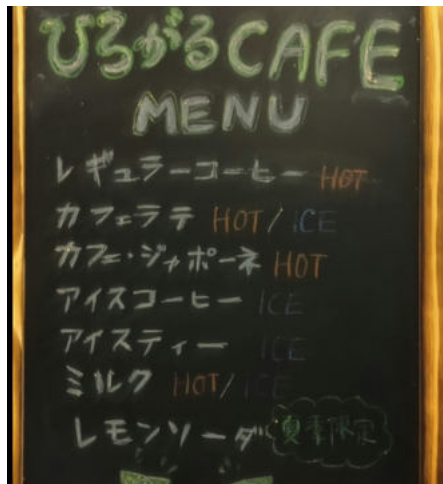 ひろがるCAFE
MENU
レギュラーコーヒー HOT
カフェラテ HOT/ICE
カフェ・ジャポーネ HOT
アイスコーヒー ICE
アイスティー ICE
ミルク HOT/ICE
レモンソーダ 夏季限定